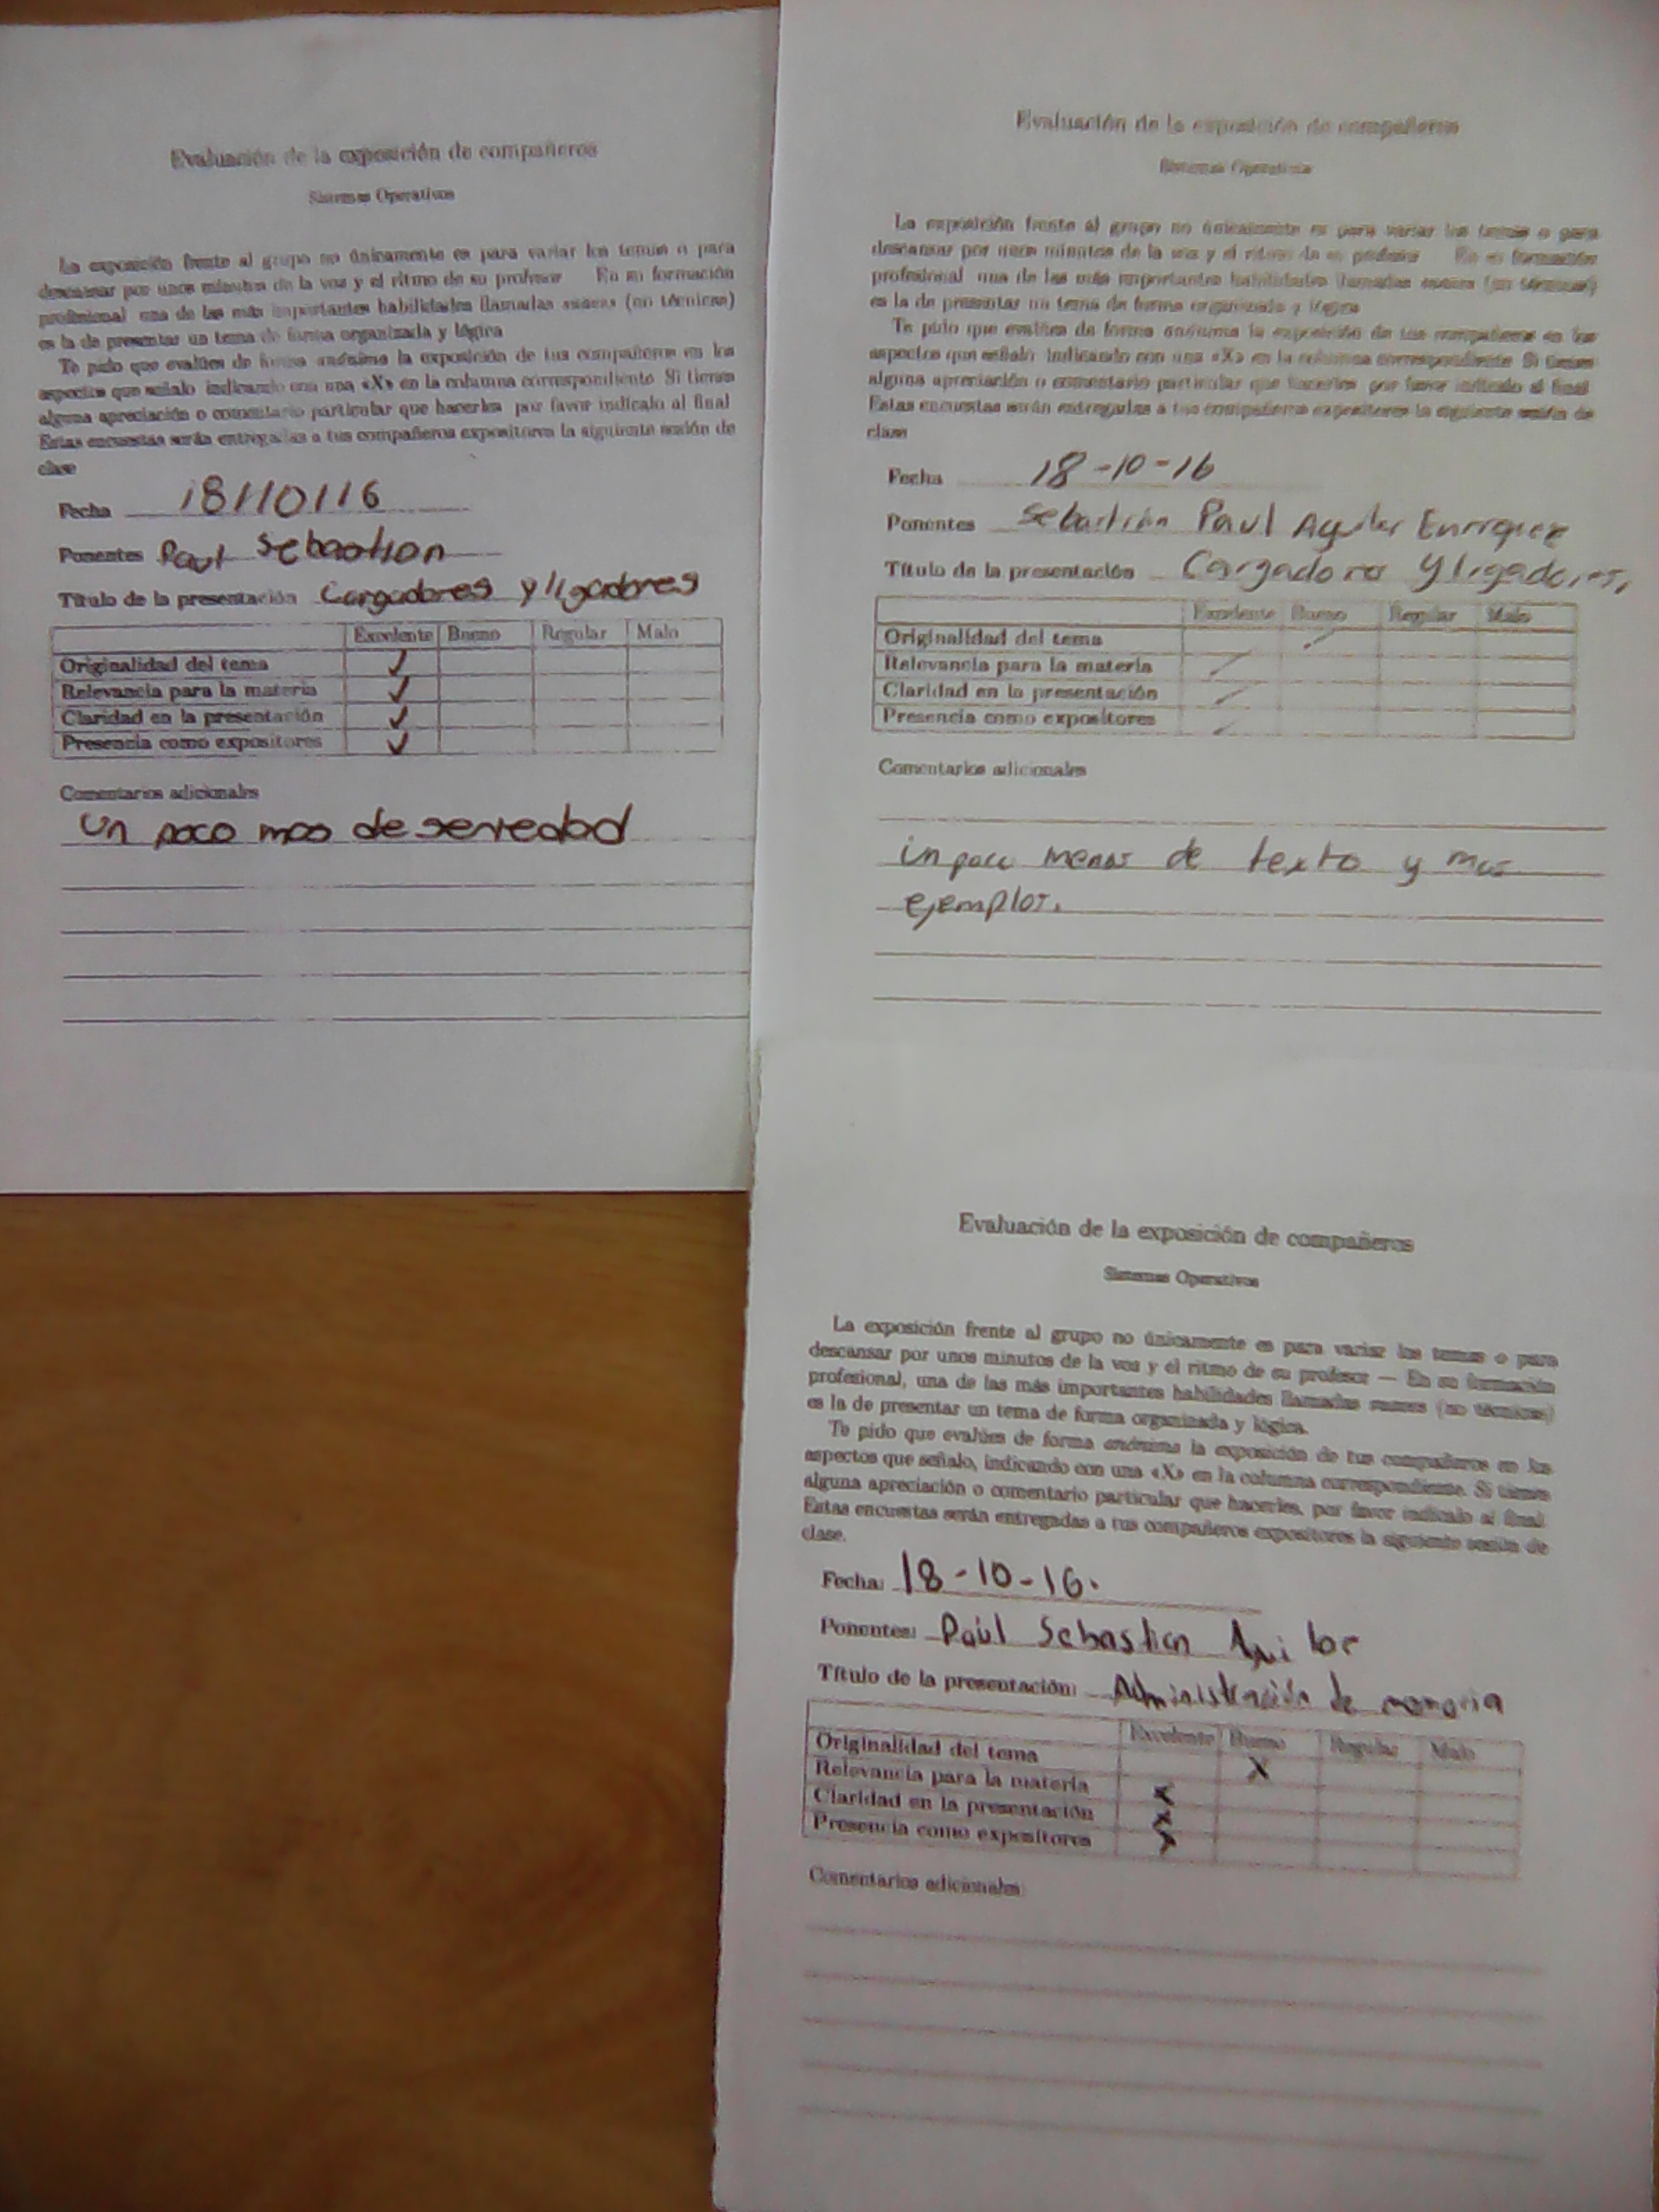 Evaluación de la exposición de compañeros
Sistemas Operativos
La exposición frente al grupo no únicamente es para variar los temas o para
descansar por unos minutos de la voz y el ritmo de su profesor En su formación
profesional una de las más importantes habilidades llamadas suaves (no técnicas)
es la de presentar un tema de forma organizada y lógica
Te pido que evalúes de forma anónima la exposición de tus compañeros en los
aspectos que señalo indicando con una «X» en la columna correspondiente Si tienes
alguna apreciación o comentario particular que hacerles por favor indícalo al final
Estas encuestas serán entregadas a tus compañeros expositores la siguiente sesión de
clase
Fecha 18/10/16
Ponentes Paul Sebastian
Título de la presentación Cargadores y ligadores
Excelente Bueno Regular Malo
Originalidad del tema ✓
Relevancia para la materia ✓
Claridad en la presentación ✓
Presencia como expositores ✓
Comentarios adicionales
Un poco mas de seriedad
Evaluación de la exposición de compañeros
Sistemas Operativos
La exposición frente al grupo no únicamente es para variar los temas o para
descansar por unos minutos de la voz y el ritmo de su profesor En su formación
profesional una de las más importantes habilidades llamadas suaves (no técnicas)
es la de presentar un tema de forma organizada y lógica
Te pido que evalúes de forma anónima la exposición de tus compañeros en los
aspectos que señalo indicando con una «X» en la columna correspondiente Si tienes
alguna apreciación o comentario particular que hacerles por favor indícalo al final
Estas encuestas serán entregadas a tus compañeros expositores la siguiente sesión de
clase
Fecha 18-10-16
Ponentes Sebastián Paul Aguilar Enriquez
Título de la presentación Cargadores y ligadores.
Excelente Bueno Regular Malo
Originalidad del tema
Relevancia para la materia
Claridad en la presentación
Presencia como expositores
Comentarios adicionales
un poco menos de texto y mas
ejemplos.
Evaluación de la exposición de compañeros
Sistemas Operativos
La exposición frente al grupo no únicamente es para variar los temas o para
descansar por unos minutos de la voz y el ritmo de su profesor — En su formación
profesional, una de las más importantes habilidades llamadas suaves (no técnicas)
es la de presentar un tema de forma organizada y lógica.
Te pido que evalúes de forma anónima la exposición de tus compañeros en los
aspectos que señalo, indicando con una «X» en la columna correspondiente. Si tienes
alguna apreciación o comentario particular que hacerles, por favor indícalo al final.
Estas encuestas serán entregadas a tus compañeros expositores la siguiente sesión de
clase.
Fecha: 18-10-16.
Ponentes: Paúl Sebastian Aguilar
Título de la presentación: Administración de memoria
Excelente Bueno Regular Malo
Originalidad del tema X
Relevancia para la materia X
Claridad en la presentación X
Presencia como expositores X
Comentarios adicionales: